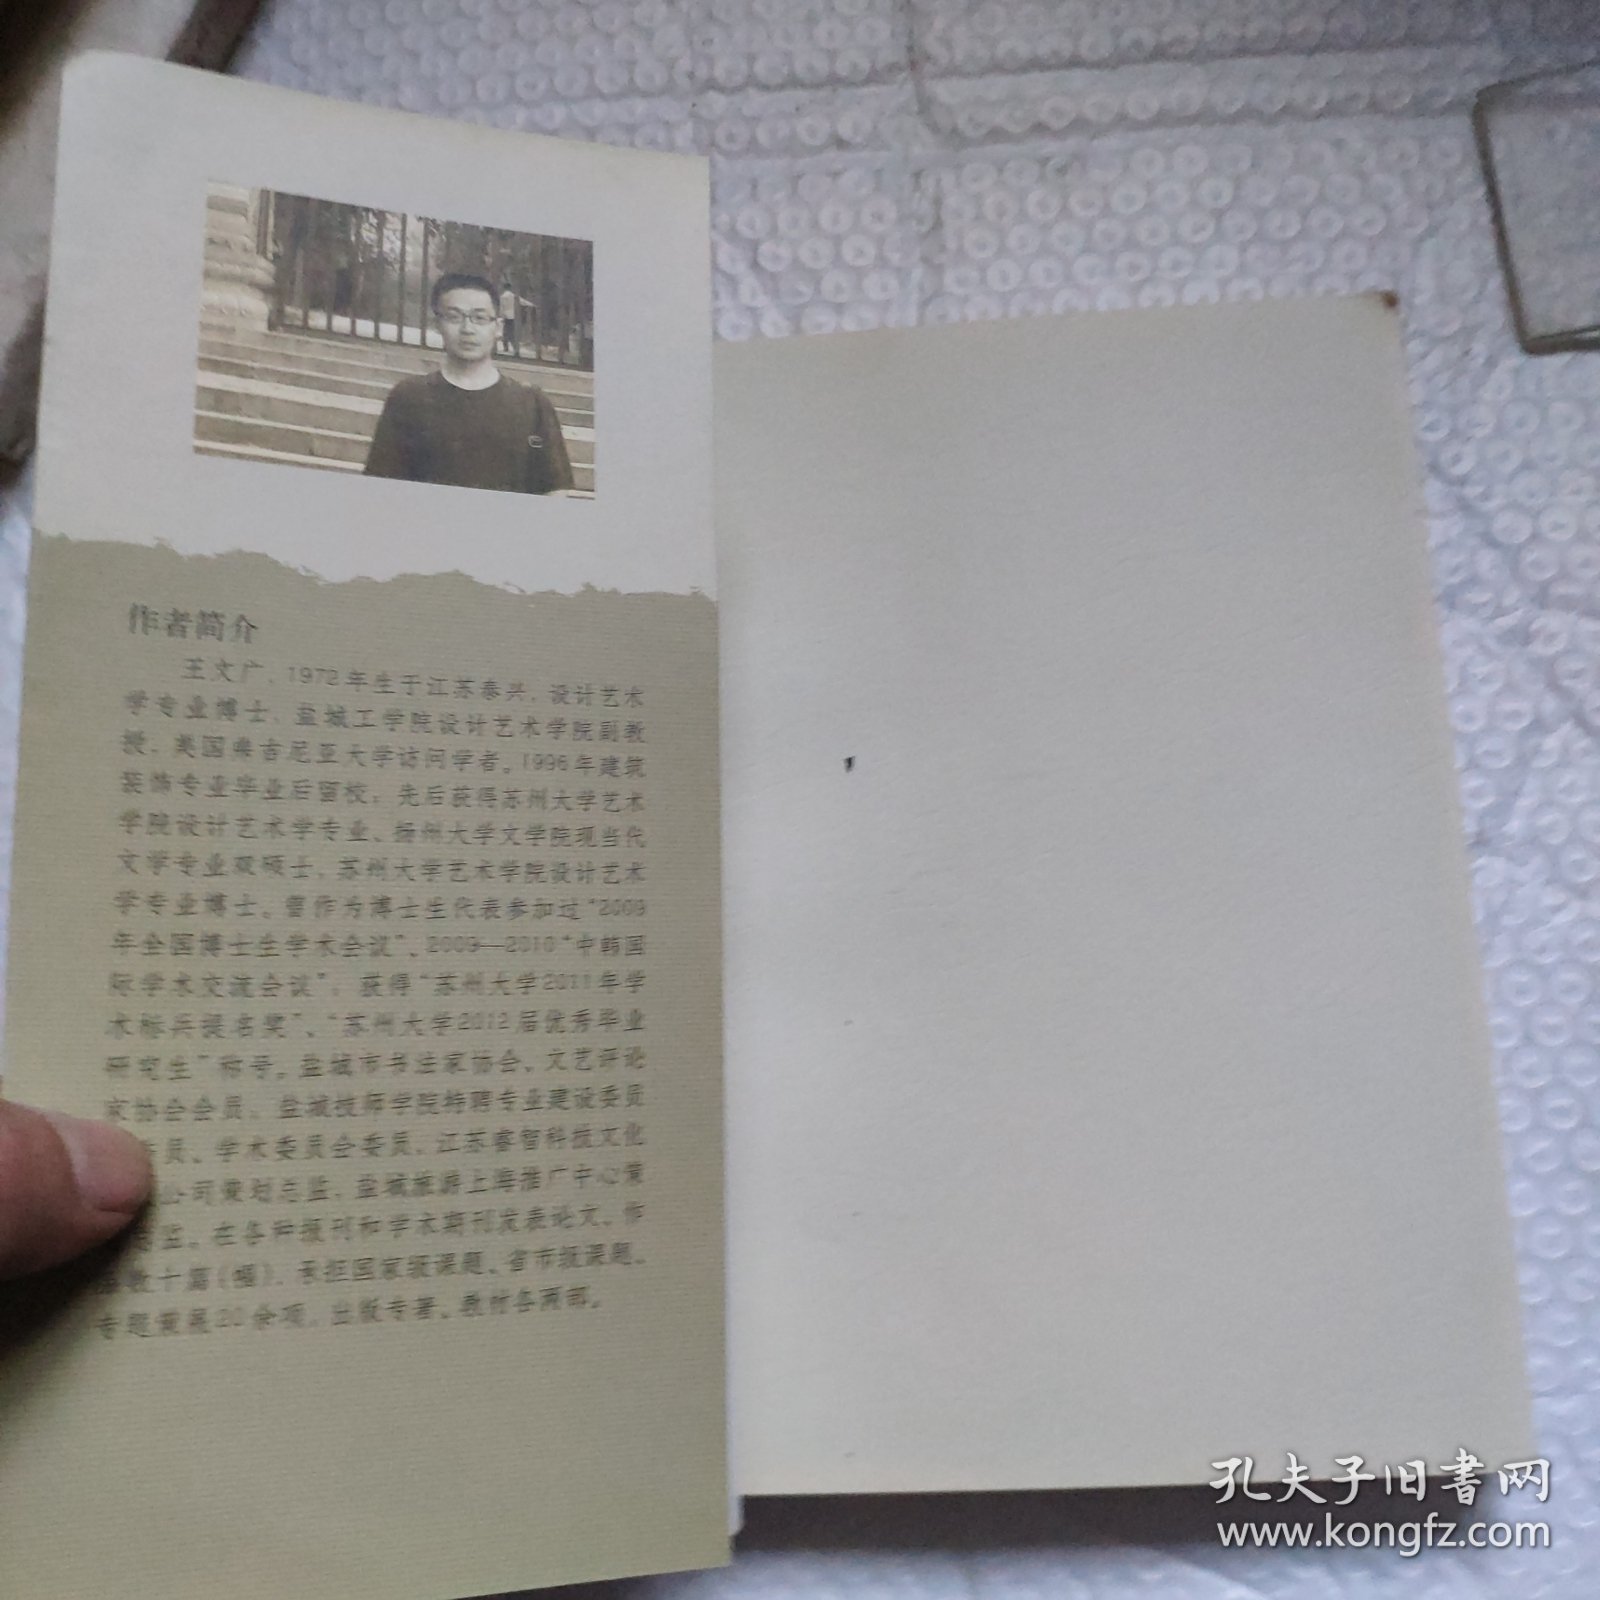 作者简介
王文广，1972年生于江苏泰兴，设计艺术
学专业博士，盐城工学院设计艺术学院副教
授，美国弗吉尼亚大学访问学者。1996年建筑
装饰专业毕业后留校，先后获得苏州大学艺术
学院设计艺术学专业、扬州大学文学院现当代
文学专业双硕士，苏州大学艺术学院设计艺术
学专业博士。曾作为博士生代表参加过“2009
年全国博士生学术会议”、2009—2010“中韩国
际学术交流会议”；获得“苏州大学2011年学
术标兵提名奖”、“苏州大学2012届优秀毕业
研究生”称号。盐城市书法家协会、文艺评论
家协会会员，盐城技师学院特聘专业建设委员
委员、学术委员会委员，江苏睿智科技文化
公司策划总监，盐城旅游上海推广中心策
总监。在各种报刊和学术期刊发表论文、作
数十篇（幅），承担国家级课题、省市级课题、
专题策展20余项，出版专著、教材各两部。
孔夫子旧书网
www.kongfz.com